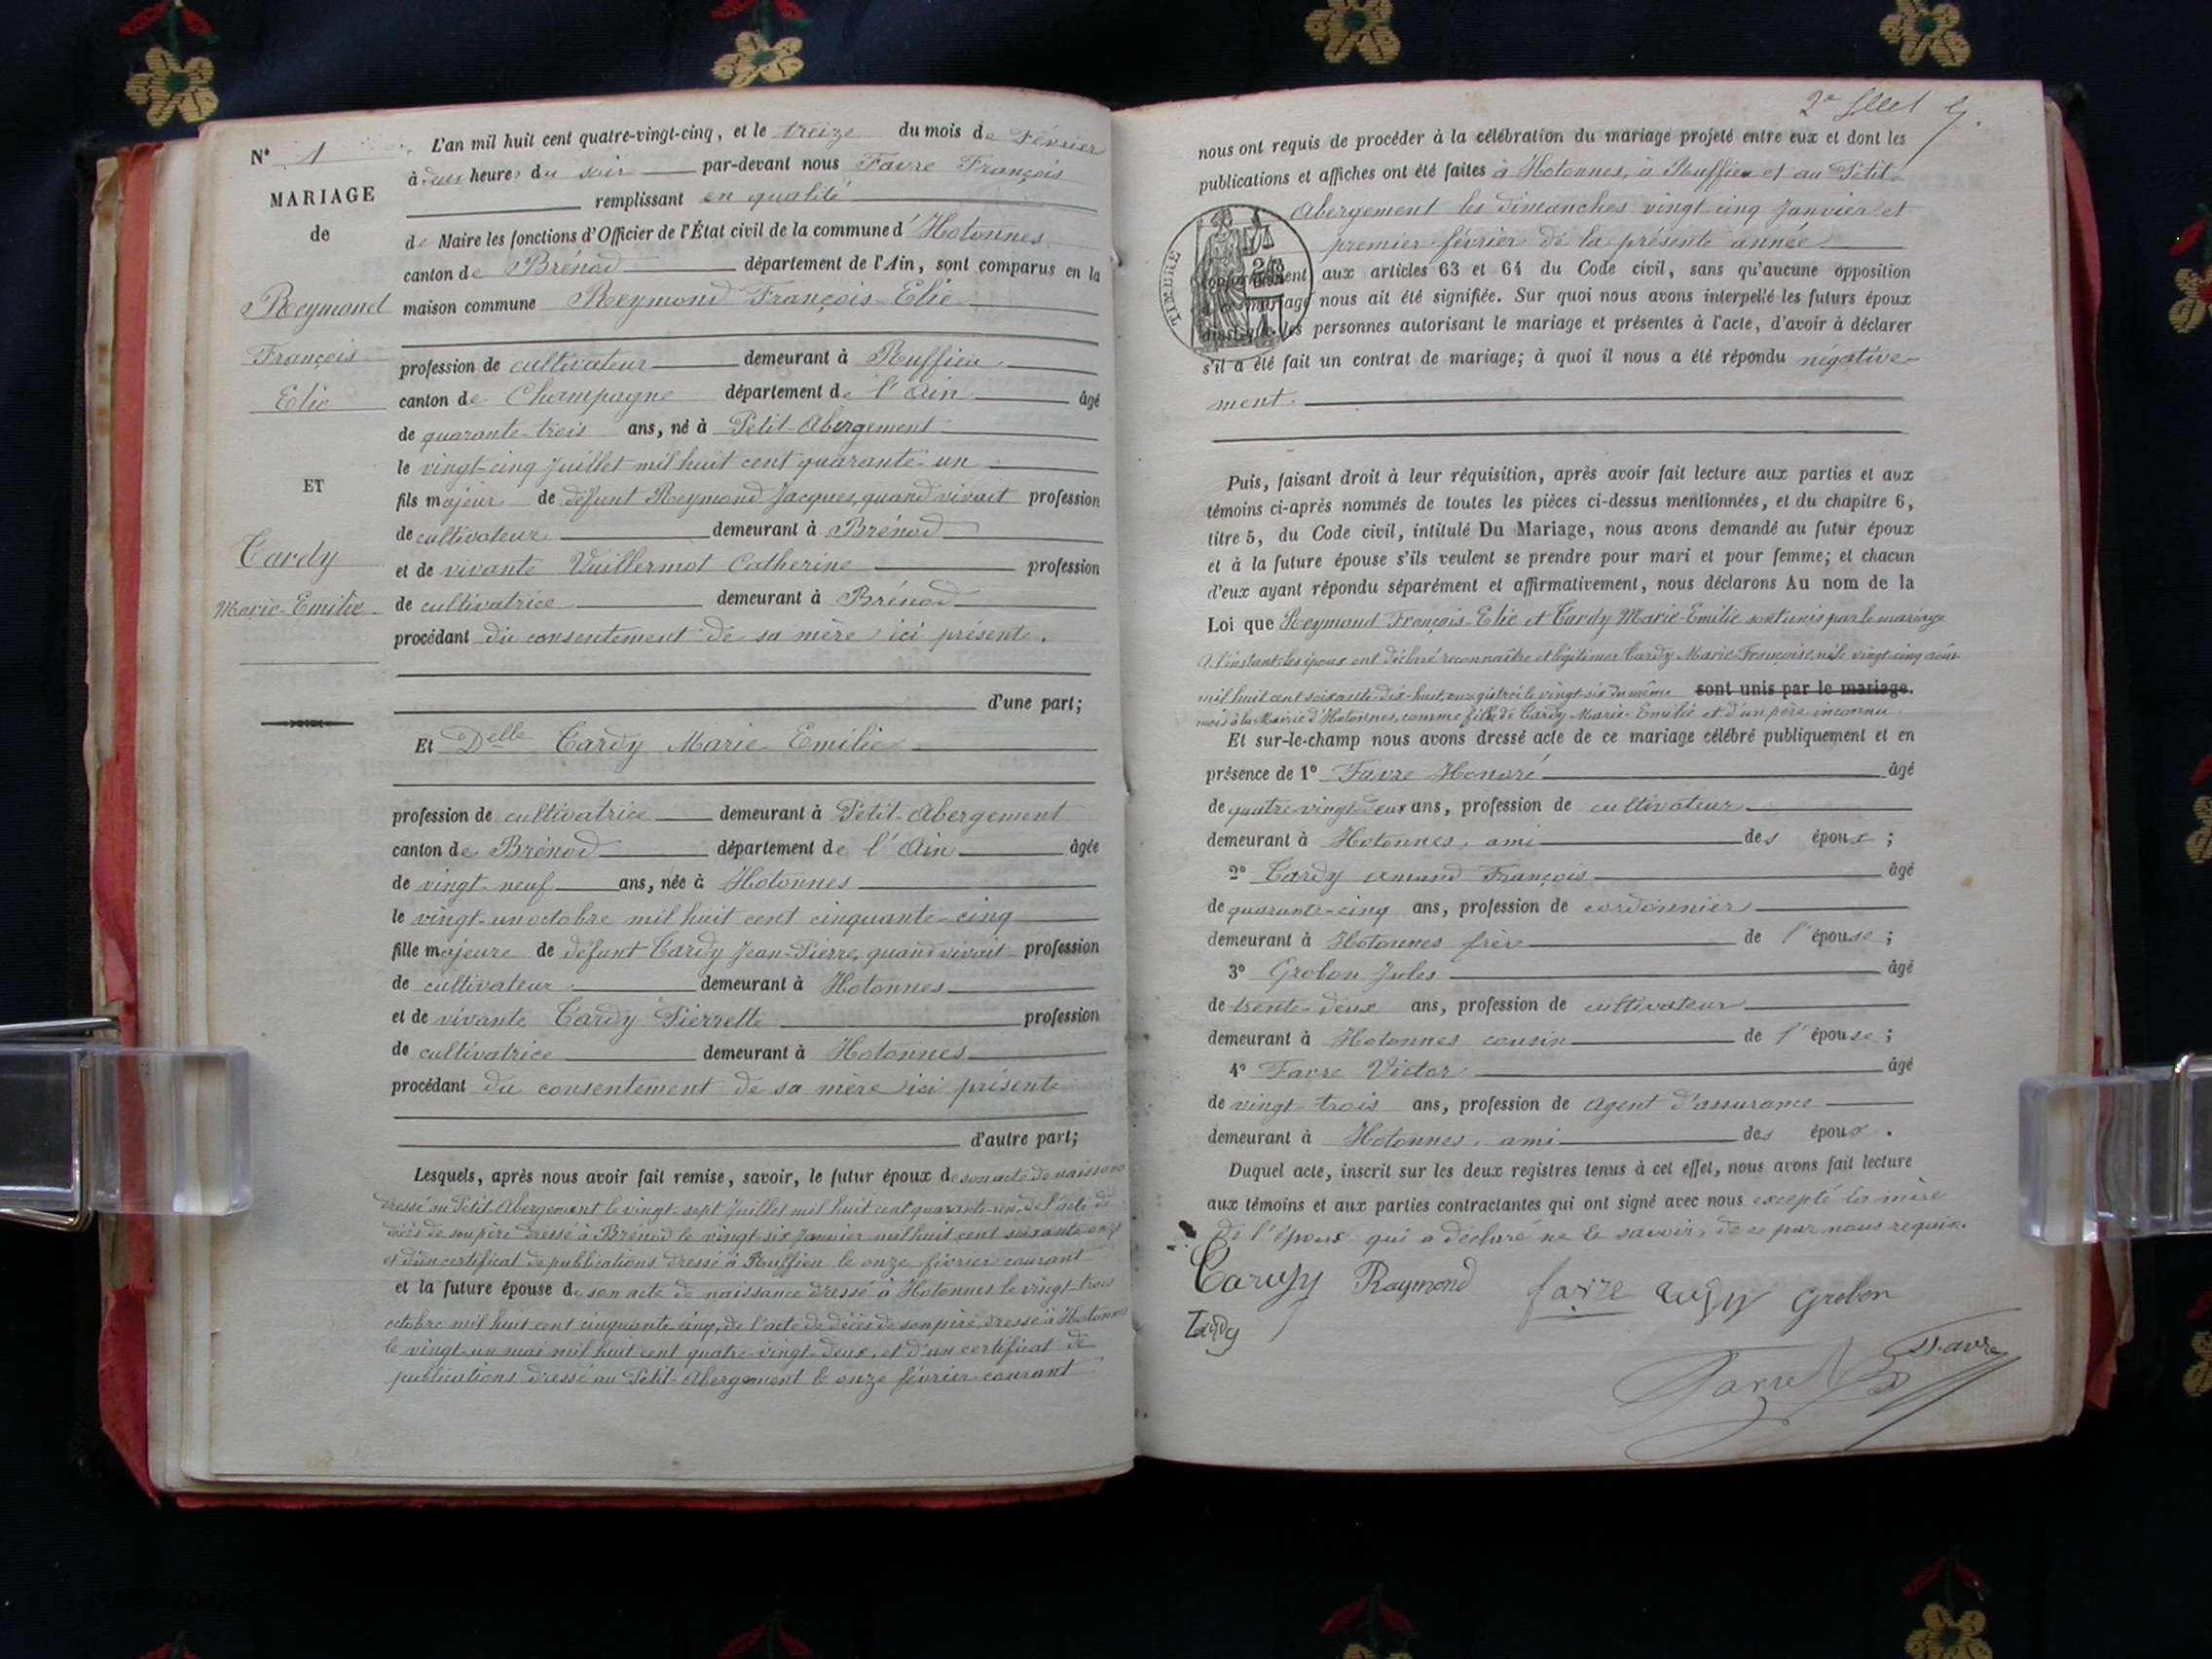 N° 1
MARIAGE
de
Reymond
François
Elie
ET
Tardy
Marie-Emilie
L'an mil huit cent quatre-vingt-cinq, et le treize du mois de Février
à deux heures du soir par-devant nous Favre François
remplissant en qualité
de Maire les fonctions d'Officier de l'État civil de la commune d'Hotonnes
canton de Brénod département de l'Ain, sont comparus en la
maison commune Reymond François-Elie
profession de cultivateur demeurant à Ruffieu
canton de Champagne département de l'Ain âgé
de quarante-trois ans, né à Petit-Abergement
le vingt-cinq Juillet mil huit cent quarante-un
fils majeur de défunt Reymond Jacques, quand vivait profession
de cultivateur demeurant à Brénod
et de vivante Vuillermot Catherine profession
de cultivatrice demeurant à Brénod
procédant du consentement de sa mère ici présente.
d'une part;
Et Delle Tardy Marie Emilie
profession de cultivatrice demeurant à Petit-Abergement
canton de Brénod département de l'Ain âgée
de vingt-neuf ans, née à Hotonnes
le vingt-un octobre mil huit cent cinquante-cinq
fille majeure de défunt Tardy Jean-Pierre, quand vivait profession
de cultivateur demeurant à Hotonnes
et de vivante Tardy Pierrette profession
de cultivatrice demeurant à Hotonnes
procédant du consentement de sa mère ici présente
d'autre part;
Lesquels, après nous avoir fait remise, savoir, le futur époux de son acte de naissance
dressé au Petit Abergement le vingt-sept Juillet mil huit cent quarante-un, de l'acte de
décès de son père dressé à Brénod le vingt-six Janvier mil huit cent soixante-onze
et d'un certificat de publications dressé à Ruffieu le onze février courant
et la future épouse de son acte de naissance dressé à Hotonnes le vingt-trois
octobre mil huit cent cinquante-cinq, de l'acte de décès de son père, dressé à Hotonnes
le vingt-un mai mil huit cent quatre-vingt-deux, et d'un certificat de
publications dressé au Petit-Abergement le onze février courant
nous ont requis de procéder à la célébration du mariage projeté entre eux et dont les
publications et affiches ont été faites à Hotonnes, à Ruffieu et au Petit-
Abergement les dimanches vingt-cinq Janvier et
premier février de la présente année
TIMBRE
conformément aux articles 63 et 64 du Code civil, sans qu'aucune opposition
à ce mariage nous ait été signifiée. Sur quoi nous avons interpellé les futurs époux
ainsi que les personnes autorisant le mariage et présentes à l'acte, d'avoir à déclarer
s'il a été fait un contrat de mariage; à quoi il nous a été répondu négative-
ment.
Puis, faisant droit à leur réquisition, après avoir fait lecture aux parties et aux
témoins ci-après nommés de toutes les pièces ci-dessus mentionnées, et du chapitre 6,
titre 5, du Code civil, intitulé Du Mariage, nous avons demandé au futur époux
et à la future épouse s'ils veulent se prendre pour mari et pour femme; et chacun
d'eux ayant répondu séparément et affirmativement, nous déclarons Au nom de la
Loi que Reymond François-Elie et Tardy Marie-Emilie sont unis par le mariage
A l'instant les époux ont déclaré reconnaître et légitimer Tardy Marie-Françoise, née le vingt-cinq août
mil huit cent soixante-dix-huit, enregistrée le vingt-six du même sont unis par le mariage.
mois à la Mairie d'Hotonnes, comme fille de Tardy Marie-Emilie et d'un père inconnu.
Et sur-le-champ nous avons dressé acte de ce mariage célébré publiquement et en
présence de 1° Favre Honoré âgé
de quatre-vingt-deux ans, profession de cultivateur
demeurant à Hotonnes, ami des époux;
2° Tardy Amand François âgé
de quarante-cinq ans, profession de cordonnier
demeurant à Hotonnes frère de l'épouse;
3° Grobon Jules âgé
de trente-deux ans, profession de cultivateur
demeurant à Hotonnes cousin de l'épouse;
4° Favre Victor âgé
de vingt-trois ans, profession de Agent d'assurance
demeurant à Hotonnes, ami des époux.
Duquel acte, inscrit sur les deux registres tenus à cet effet, nous avons fait lecture
aux témoins et aux parties contractantes qui ont signé avec nous excepté la mère
de l'époux qui a déclaré ne le savoir, de ce par nous requise.
Tardy Raymond favre Tardy Grobon
Tardy
Favre